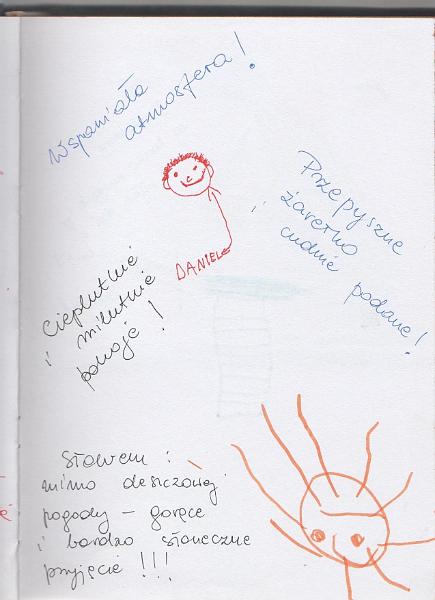 Wspaniała
atmosfera!
Przepyszne
żarełko
cudnie podane!
DANIELE
Cieplutkie
i milutkie
pokoje!
Słowem:
mimo deszczowej
pogody - gorące
i bardzo słoneczne
przyjęcie!!!